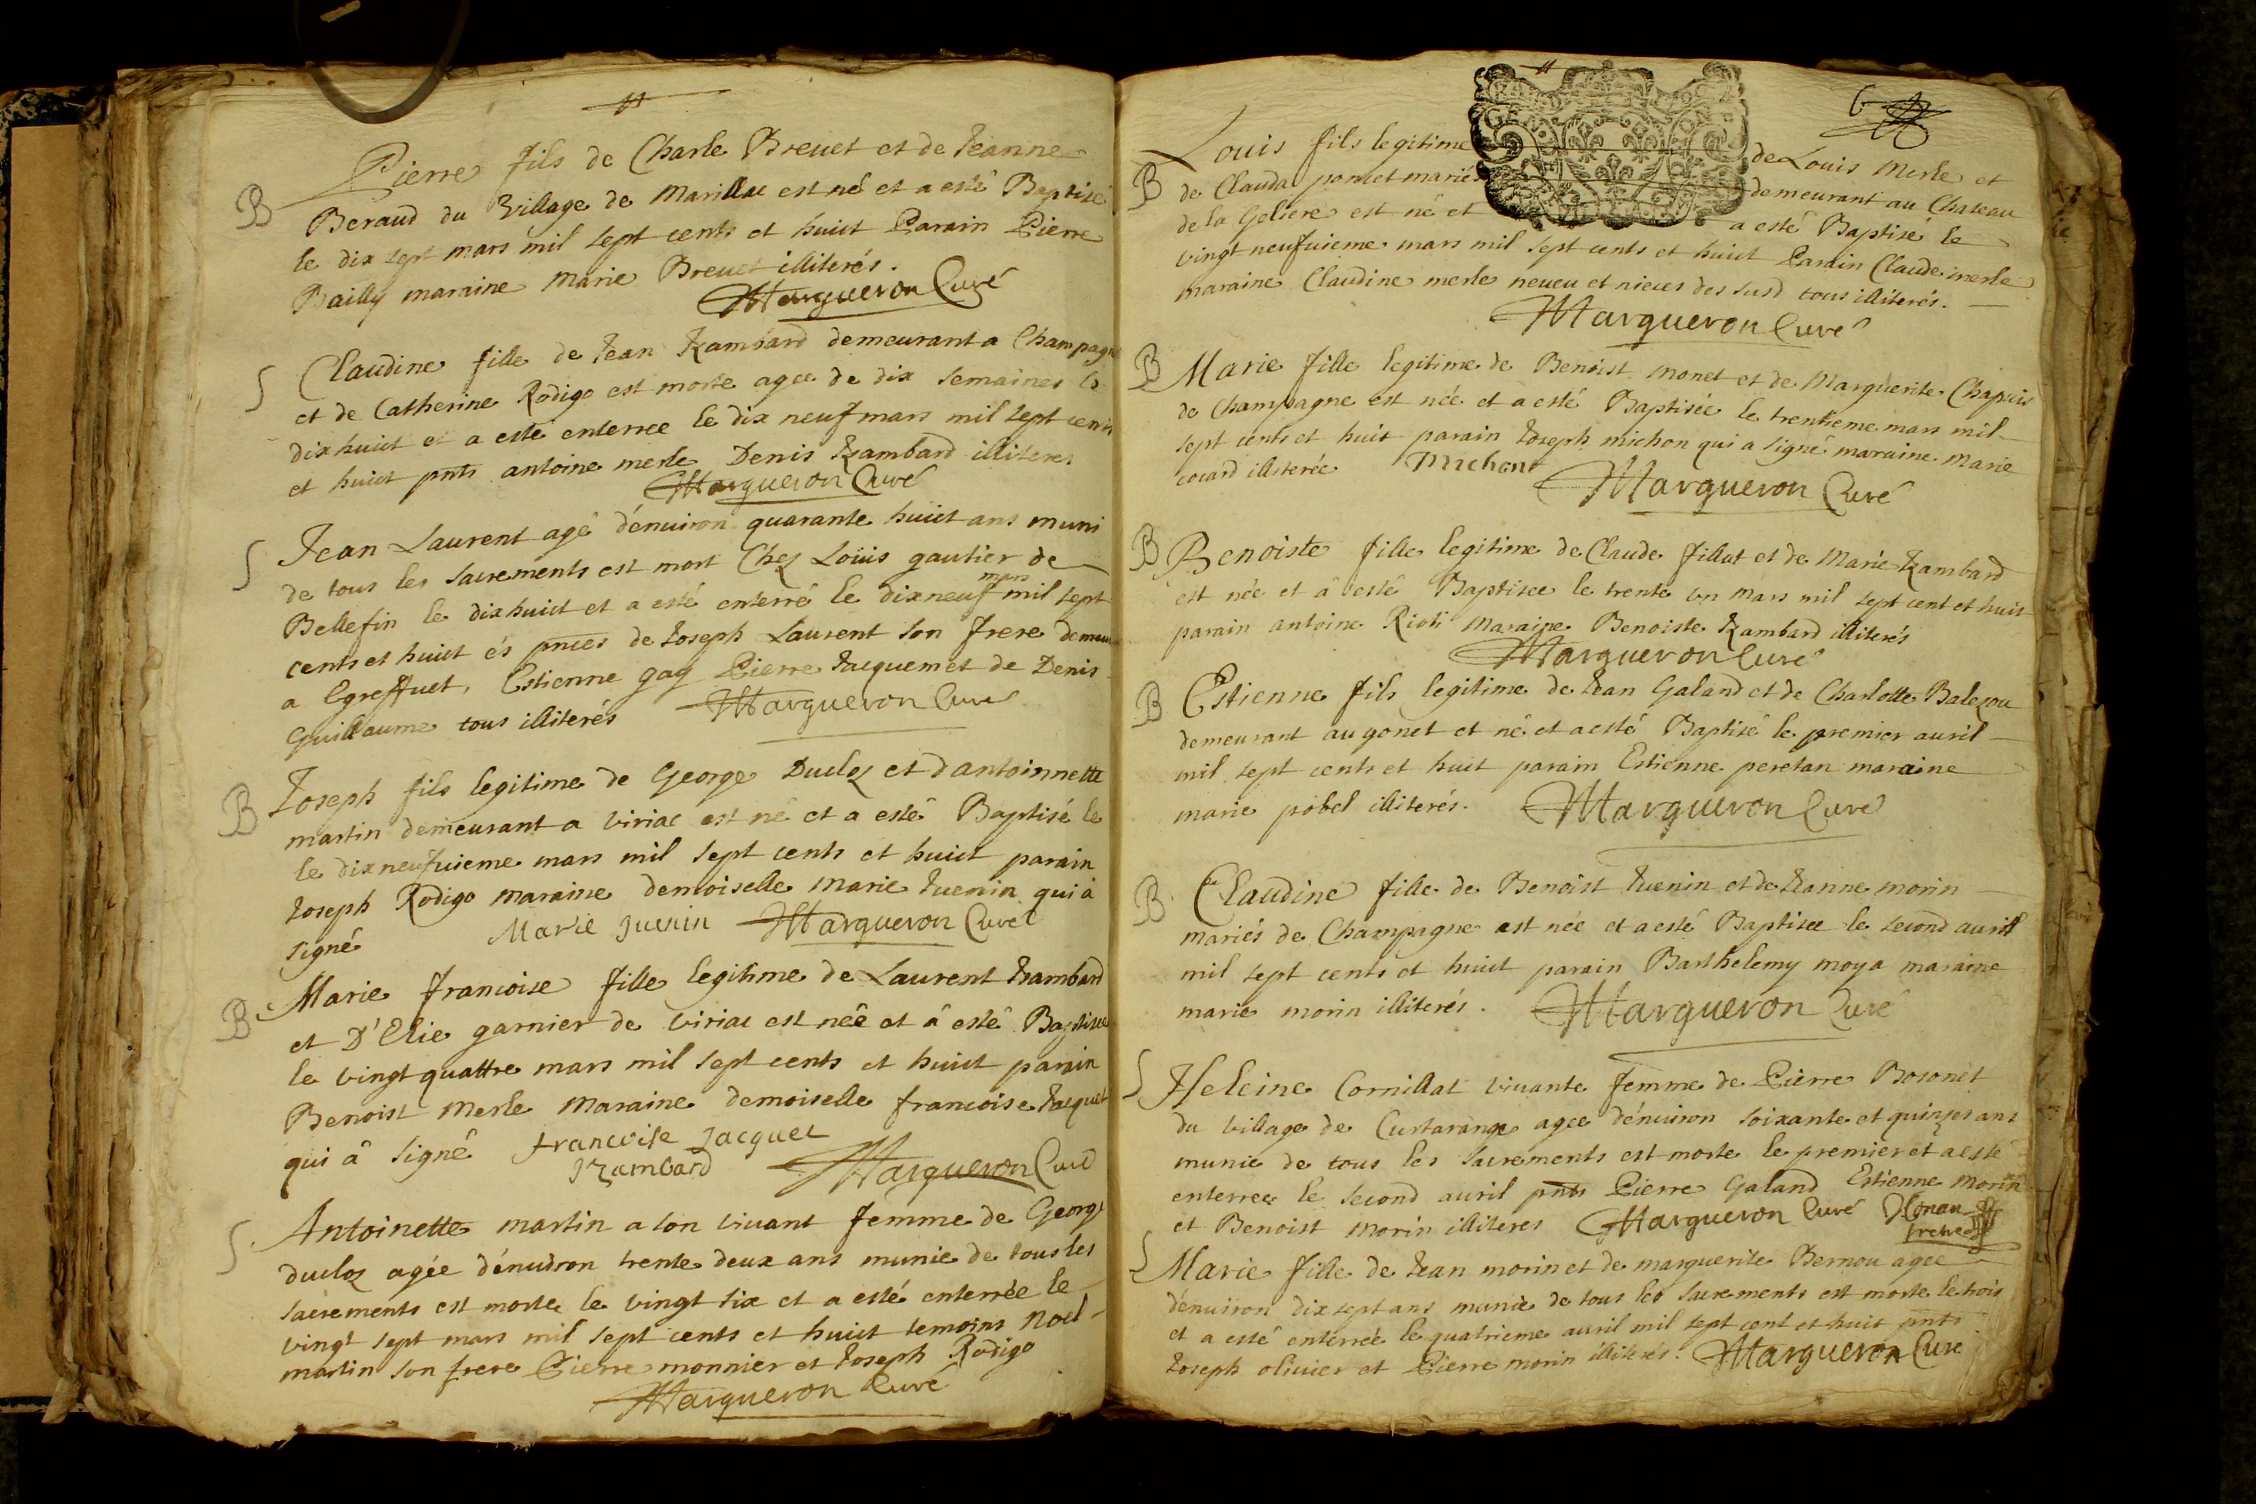 Pierre fils de Charle Breuet et de Jeanne
B
Beraud du Village de Marillac est né et a esté Baptisé
le dix sept mars mil sept cents et huict Parain Pierre
Bailly maraine Marie Breuet illiterés.
Margueron Curé
Claudine fille de Jean Rambard demeurant a Champagne
S
et de Catherine Rodigo est morte agee de dix semaines le
dix huict et a esté enterree le dix neuf mars mil sept cents
et huict pnts antoine merle Denis Rambard illiteres
Margueron Curé
Jean Laurent agé d'enuiron quarante huict ans muni
S
de tous les sacrements est mort Chez Loüis gautier de
Bellefin le dixhuict et a esté enterré le dixneuf mars mil sept
cents et huict és pnces de Joseph Laurent son frere
a Egreffuet, Estienne gay Pierre Jacquemet de Denis
Guillaume tous illiterés Margueron Curé
Joseph fils legitime de George Ducloz et d'antoinnette
B
martin demeurant a viriac est né et a esté Baptisé le
le dixneufuieme mars mil sept cents et huict parain
Joseph Rodigo maraine demoiselle Marie Juenin qui a
signé Marie Juenin Margueron Curé
Marie francoise fille legitime de Laurent Rambard
B
et D'Elie garnier de viriac est née et â esté Baptisee
le vingt quattre mars mil sept cents et huict parain
Benoist Merle Maraine demoiselle francoise Jacquet
qui â signé francoise Jacquet
Rambard Margueron Curé
Antoinette martin a son viuant femme de George
S
ducloz agée d'enuiron trente deux ans munie de tous les
sacrements est morte le vingt six et a esté enterrée le
vingt sept mars mil sept cents et huict temoins Noel
martin son frere Pierre monnier et Joseph Rodigo
Margueron Curé
6
Louis fils legitime de Louis Merle et
B
de Clauda poncet mariés demeurant au Chateau
de la Geliere est né et a esté Baptisé le
vingt neufuieme mars mil sept cents et huict Parain Claude merle
maraine Claudine merle neueu et nieces des susd tous illiterés.
Margueron Curé
B
Marie fille legitime de Benoist Monet et de Marguerite Chapuis
de Champagne est née et a esté Baptisée le trentieme mars mil
sept cents et huit parain Joseph michon qui a signé maraine Marie
couard illiterée Michon
Margueron Curé
B
Benoiste fille legitime de Claude fillat et de Marie Rambard
est née et â esté Baptisee le trente un mars mil sept cent et huit
parain antoine Rioti Maraine Benoiste Rambard illiterés
Margueron Curé
B
Estienne fils legitime de Jean Galand et de Charlotte
demeurant au gonet et né et a esté Baptisé le premier auril
mil sept cents et huit parain Estienne peretan maraine
marie pobel illiterés. Margueron Curé
B
Claudine fille de Benoist Juenin et de Jeanne morin
mariés de Champagne est née et a esté Baptisee le second auril
mil sept cents et huict parain Barthelemy moya maraine
marie morin illiterés. Margueron Curé
S
Heleine Cornillat viuante femme de Pierre Bozonet
du village de Curtarange agee d'enuiron soixante et quinze ans
munie de tous les sacrements est morte le premier et a esté
enterree le second auril pnts Pierre Galand Estienne morin
et Benoist morin illiteres Margueron Curé
S
Marie fille de Jean morin et de marguerite Bernou agee
d'enuiron dix sept ans munie de tous les sacrements est morte le trois
et a esté enterrée le quatrieme auril mil sept cent et huit pnts
Joseph oliuier et Pierre morin illiterés. Margueron Curé